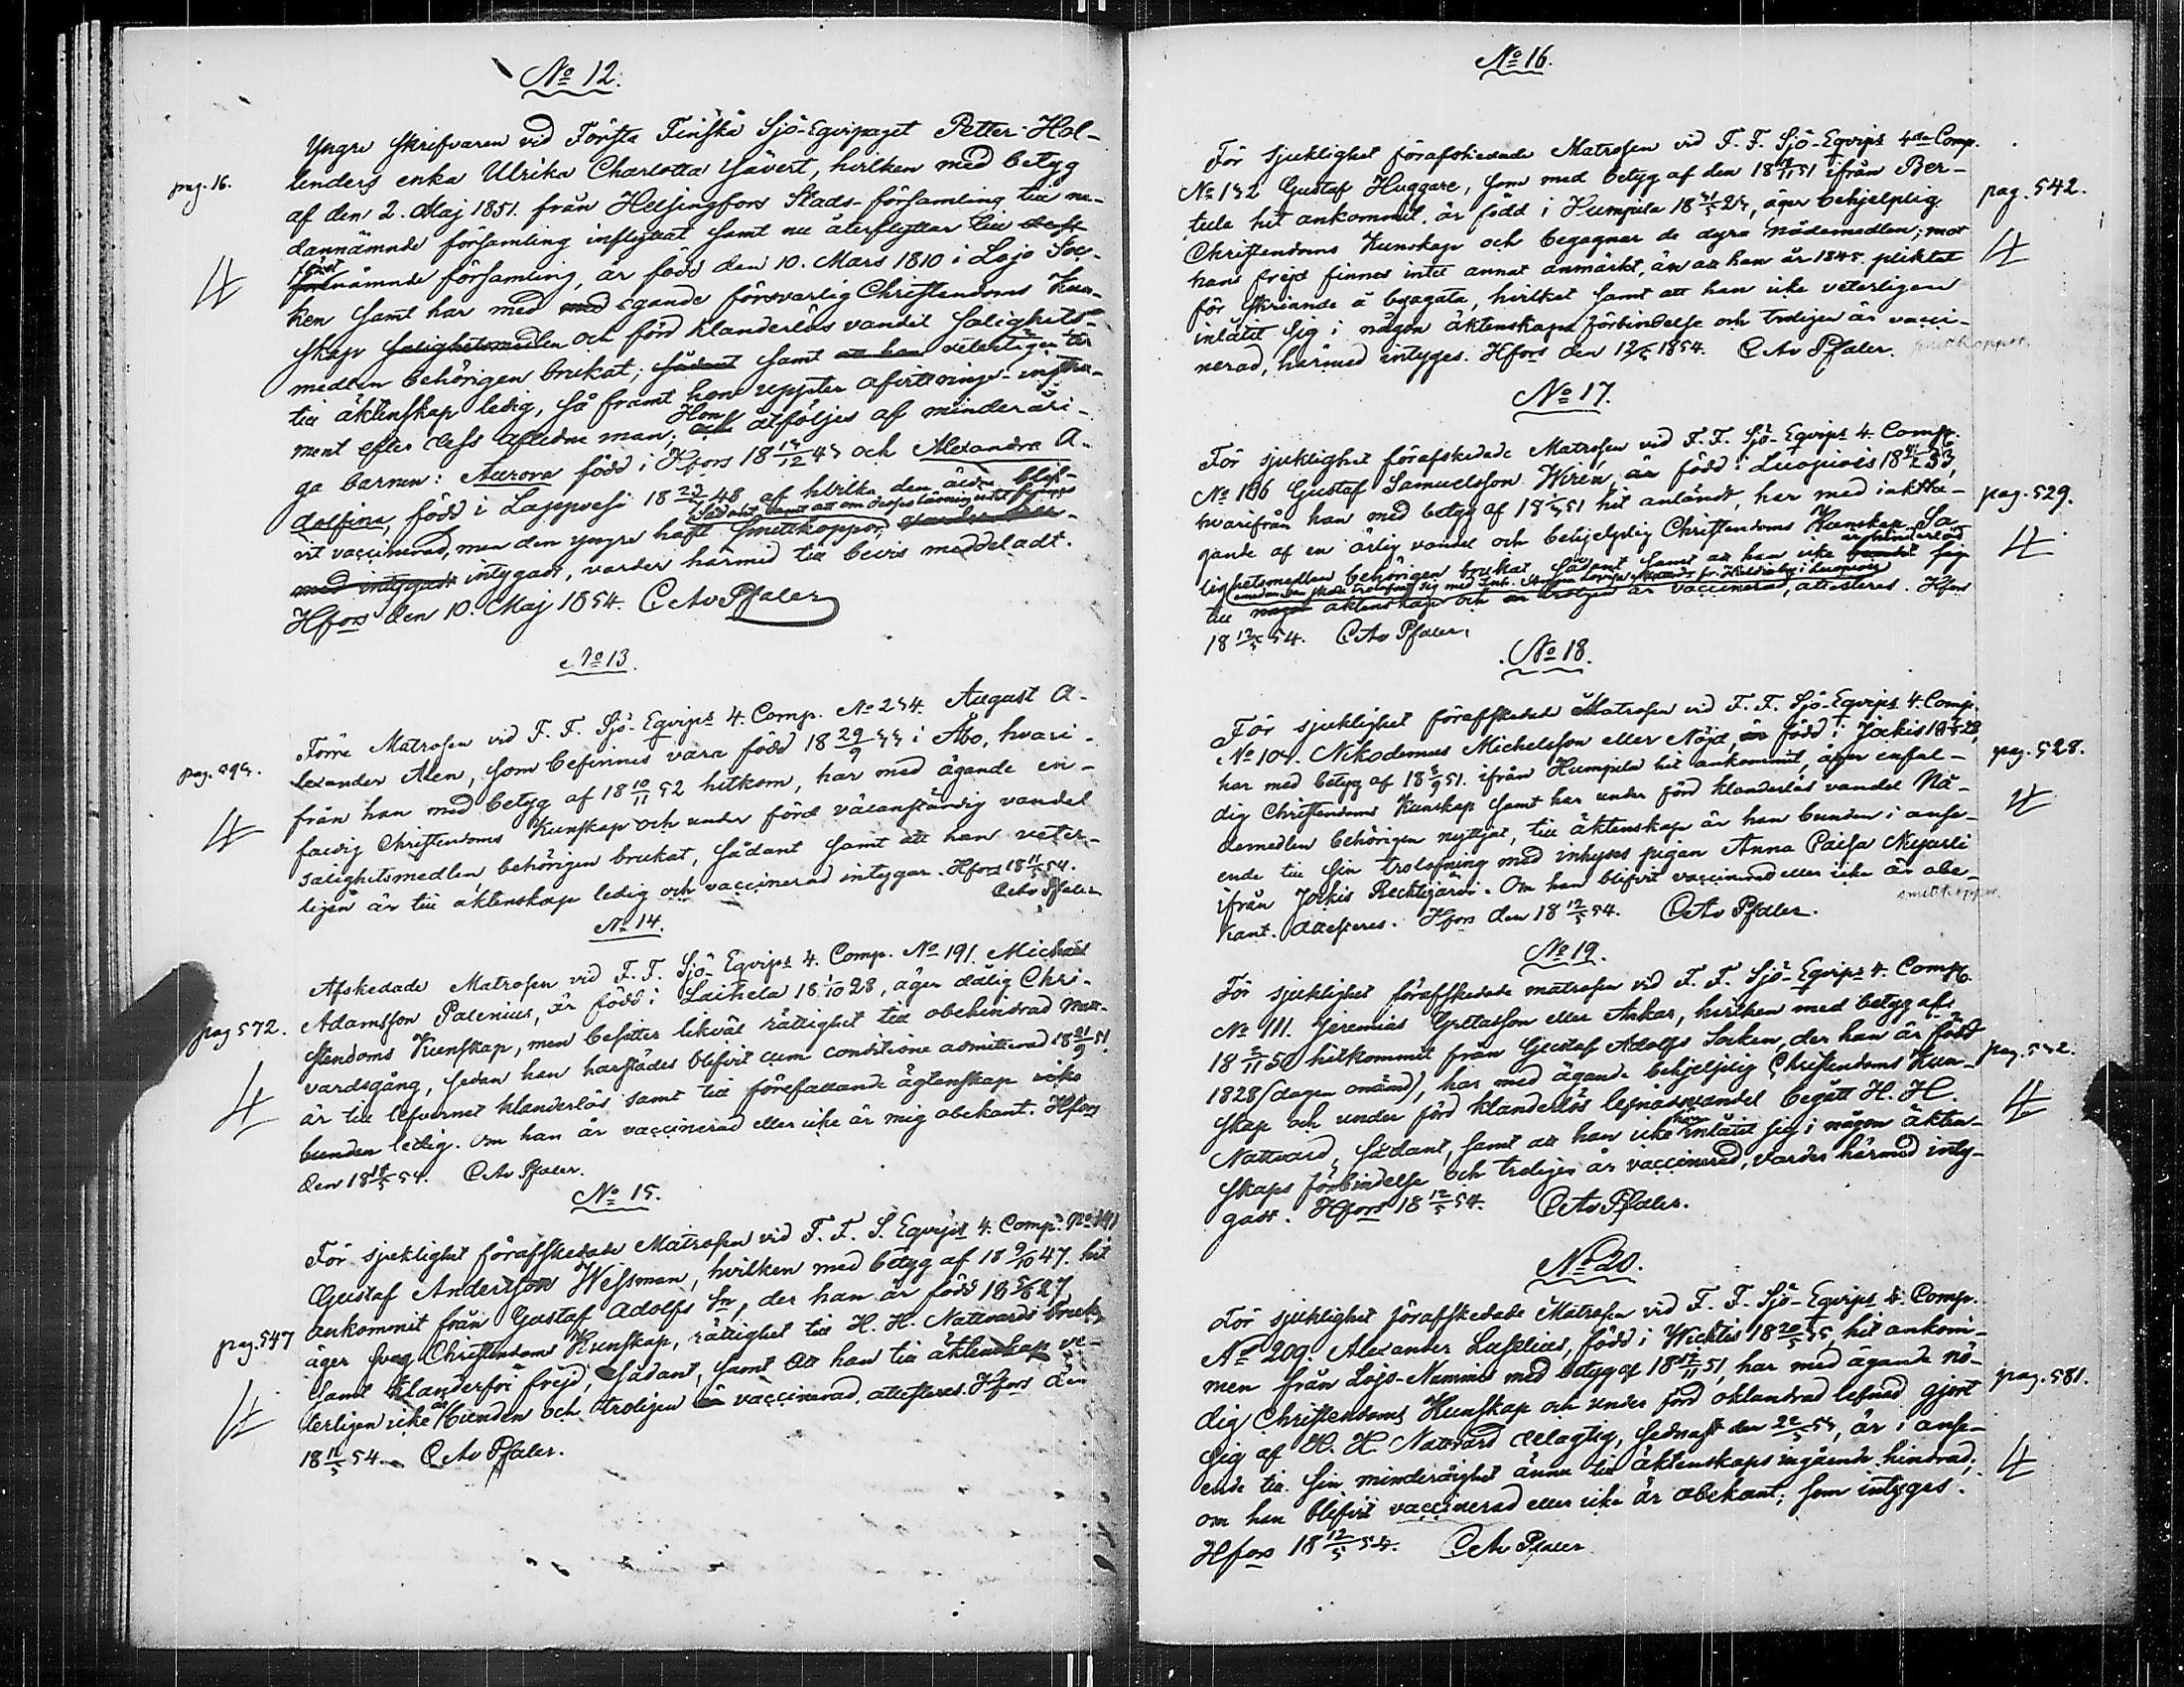 No 12.
Yngre Skrifvaren vid Första Finska Sjö-Eqvipaget Petter Hol-
lenders enka Ulrika Charlotta Gävert, hvilken med betyg
pag. 16.
af den 2. Maj 1851. från Helsingfors Stads-församling till ne-
dannämnde församling inflyttat samt nu återflyttar till
först
nämnde församling, är född den 10. Mars 1810 i Lojo Soc-
ken samt har med med egande försvarlig Christendoms Kun-
skap salighetsmedlen och förd klanderlös vandel salighets-
medlen behörigen brukat; sådant samt att hon veterligen är
till äktenskap ledig, så framt hon uppter afvittrings-instru-
ment efter dess aflidne man; Hon åtföljes af minderåri-
ga barnen: Aurora född i Hfors 18 15/12 45 och Alexandra A-
dolfina, född i Lappvesi 18 23/2 48, af hvilka den äldre blif-
vit vaccinerad, men den yngre haft smittkoppor,
med intygadt intygadt, varder härmed till bevis meddeladt.
Hfors den 10. Maj 1854. C Av Pfaler
No 13.
Förre Matrosen vid F. F. Sjö-Eqvips 4. Comp. No 254. August A-
lexander Alen, som befinnes vara född 18 29/9 33 i Åbo, hvari-
från han med betyg af 18 10/11 52 hitkom, har med ägande en-
faldig Christendoms Kunskap och under förd välanständig vandel
salighetsmedlen behörigen brukat, sådant samt att han veter-
ligen är till äktenskap ledig och vaccinerad intygar. Hfors 18 11/5 54.
C Av Pfaler
No 14.
Afskedade Matrosen vid F. F. Sjö-Eqvips 4. Comp. No 191. Michael
Adamsson Palenius, är född i Laihela 18 1/10 28, äger dålig Chri-
pag 572.
stendoms Kunskap, men besitter likväl rättighet till obehindrad Natt-
vardsgång, sedan han härstädes blifvit cum conditione admitterad 18 21/9 51.
är till lefvernet klanderlös samt till förefallande ägtenskap icke
bunden ledig. Om han är vaccinerad eller icke är mig obekant. Hfors
den 18 11/5 54. C Av Pfaler.
No 15.
För sjuklighet förafskedade Matrosen vid F. F. S. Eqvips 4. Comp. No 141
Gustaf Andersson Wessman, hvilken med betyg af 18 9/10 47. hit
ankommit från Gustaf Adolfs Sn, der han är född 18 5/6 27
pag. 547
äger svag Christendoms Kunskap, rättighet till H. H. Nattvards bruk,
samt klanderfri frejd, Sådant, samt att han till äktenskap ve-
terligen icke är bunden och troligen är vaccinerad, attesteras. Hfors den
18 11/5 54. C Av Pfaler.
No 16.
För sjuklighet förafskedade Matrosen vid F. F. Sjö-Eqvips 4de Comp.
No 132 Gustaf Huggare, som med betyg af den 18 12/11 51 ifrån Ber-
pag. 542.
tula hit ankommit, är född i Humpila 18 31/5 25, äger behjelplig
Christendoms Kunskap och begagnar de dyra nådemedlen; mot
hans frejd finnes intet annat anmärkt, än att han år 1845. pliktat
för skriande å bygata, hvilket samt att han icke veterligen
inlåtit sig i någon äktenskaps förbindelse och troligen är vacci-
nerad, härmed intyges. Hfors den 12/5 1854. C Av Pfaler. smittkoppor.
No 17.
För sjuklighet förafskedade Matrosen vid F. F. Sjö-Eqvips 4. Comp.
No 186 Gustaf Samuelsson Wirén, är född i Luopiois 18 33,
hvarifrån han med betyg af 18 51 hit anländt, har med iaktta-
pag. 529.
gande af en ärlig vandel och behjelplig Christendoms Kunskap Sa-
är hindrad
lighetsmedlen behörigen brukat, Sådant samt att han icke sig
till något äktenskap och är troligen är vaccinerad, attesteras. Hfors
18 12/5 54. C Av Pfaler.
No 18.
För sjuklighet förafskedade Matrosen vid F. F. Sjö-Eqvips 4. Comp.
No 104. Nikodemus Michelsson eller Nöjd, är född i Jockis 28,
har med betyg af 18 5/9 51. ifrån Humpila hit ankommit, äger enfal-
pag. 528.
dig Christendoms Kunskap samt har under förd klanderlös vandel Nå-
demedlen behörigen nyttjat, till äktenskap är han bunden i anse-
ende till sin trolofning med inhyses pigan Anna Caisa Nyyarli
ifrån Jokis Rehtijärvi. Om han blifvit vaccinerad eller icke är obe-
smittkoppor.
kant. attesteres. Hfors den 18 12/5 54. C Av Pfaler.
No 19.
För sjuklighet förafskedade matrosen vid F. F. Sjö-Eqvips 4. Comp.
No 111. Jeremias Gretasson eller Ankar, hvilken med betyg af
18 2/11 50 hitkommit från Gustaf Adolfs Socken, der han är född
1828 (dagen onämd), har med ägande behjelplig Christendoms Kun-
skap och under förd klanderlös lefnadsvandel begått H. H.
Nattvard, Sådant, samt att han icke inlåtit sig i någon äkten-
skaps förbindelse och troligen är vaccinerad, varder härmed inty-
gadt. Hfors 18 12/5 54. C Av Pfaler.
No 20.
För sjuklighet förafskedade Matrosen vid F. F. Sjö-Eqvips 4. Comp.
No 209. Alexander Laselius, född i Wichtis 18 20/5 35, hit ankom-
men från Lojo-Nummis med betyg af 18 12/11 51, har med ägande nö-
pag. 581.
dig Christendoms Kunskap och under förd oklandrad lefnad gjort
sig af H. H. Nattvard delagtig, sednast den 2/5 54, är i anse-
ende till sin minderåighet ännu till äktenskaps ingående hindrad;
om han blifvit vaccinerad eller icke är obekant; som intyges.
Hfors 18 12/5 54. C Av Pfaler